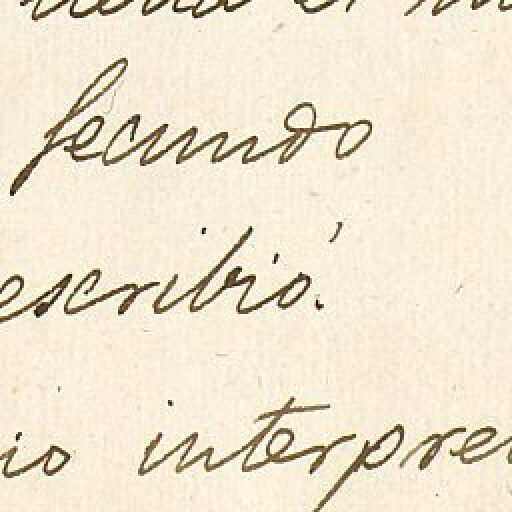 el
fecundo
escribió.
io interpre